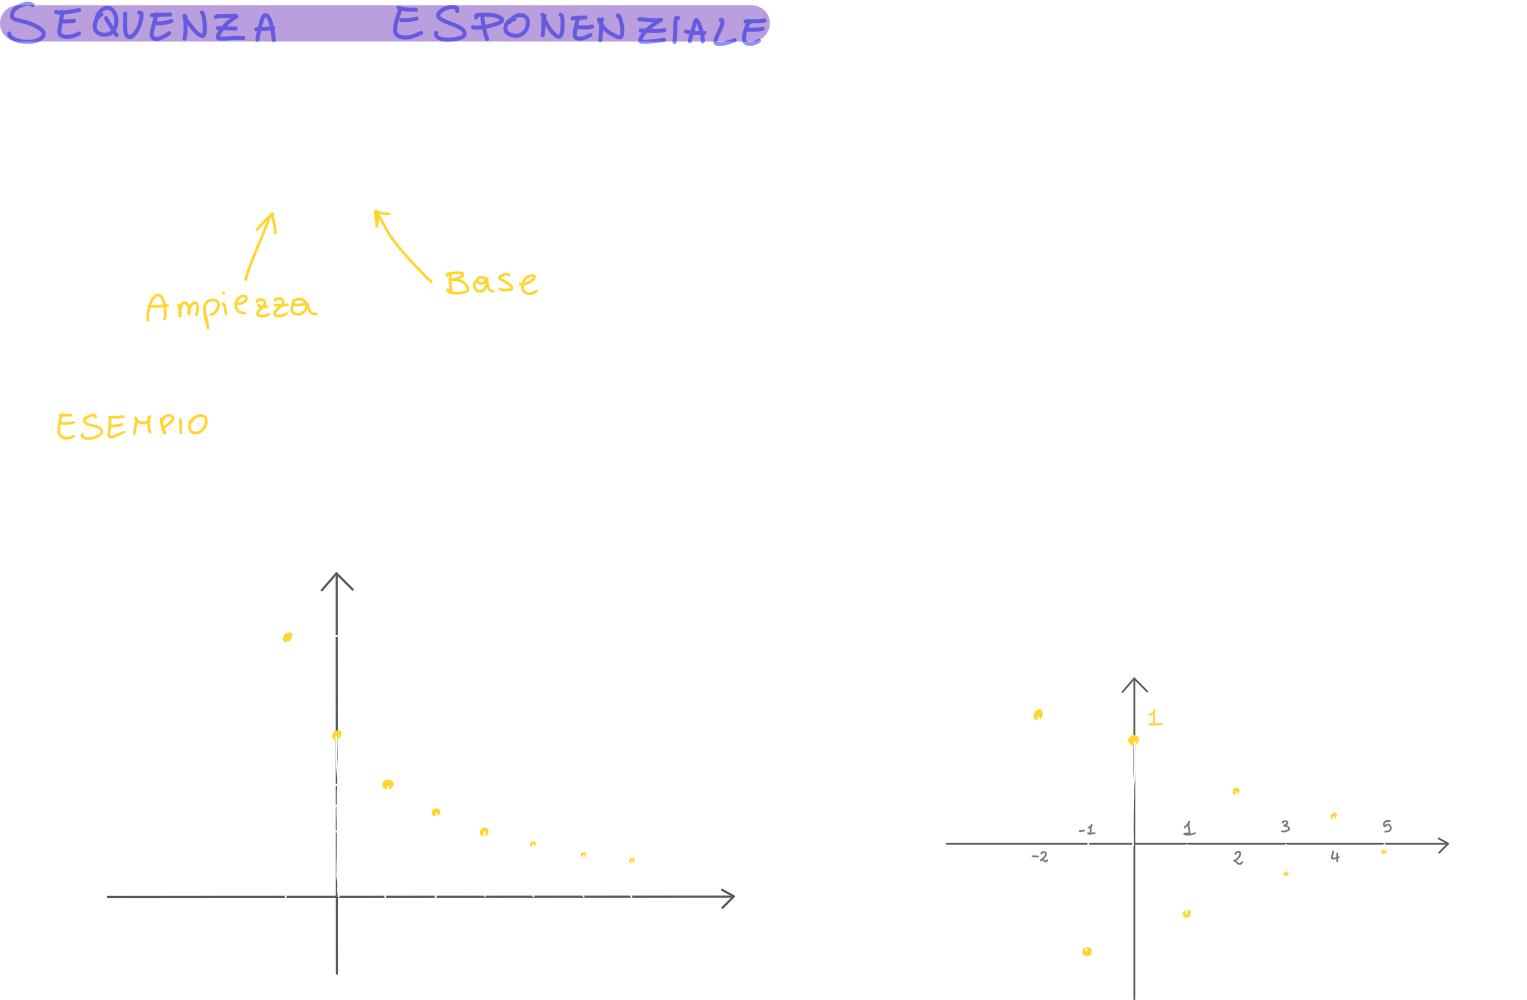 SEQUENZA ESPONENZIALE
Ampiezza
Base
ESEMPIO
1
-1 1 3 5
-2 2 4